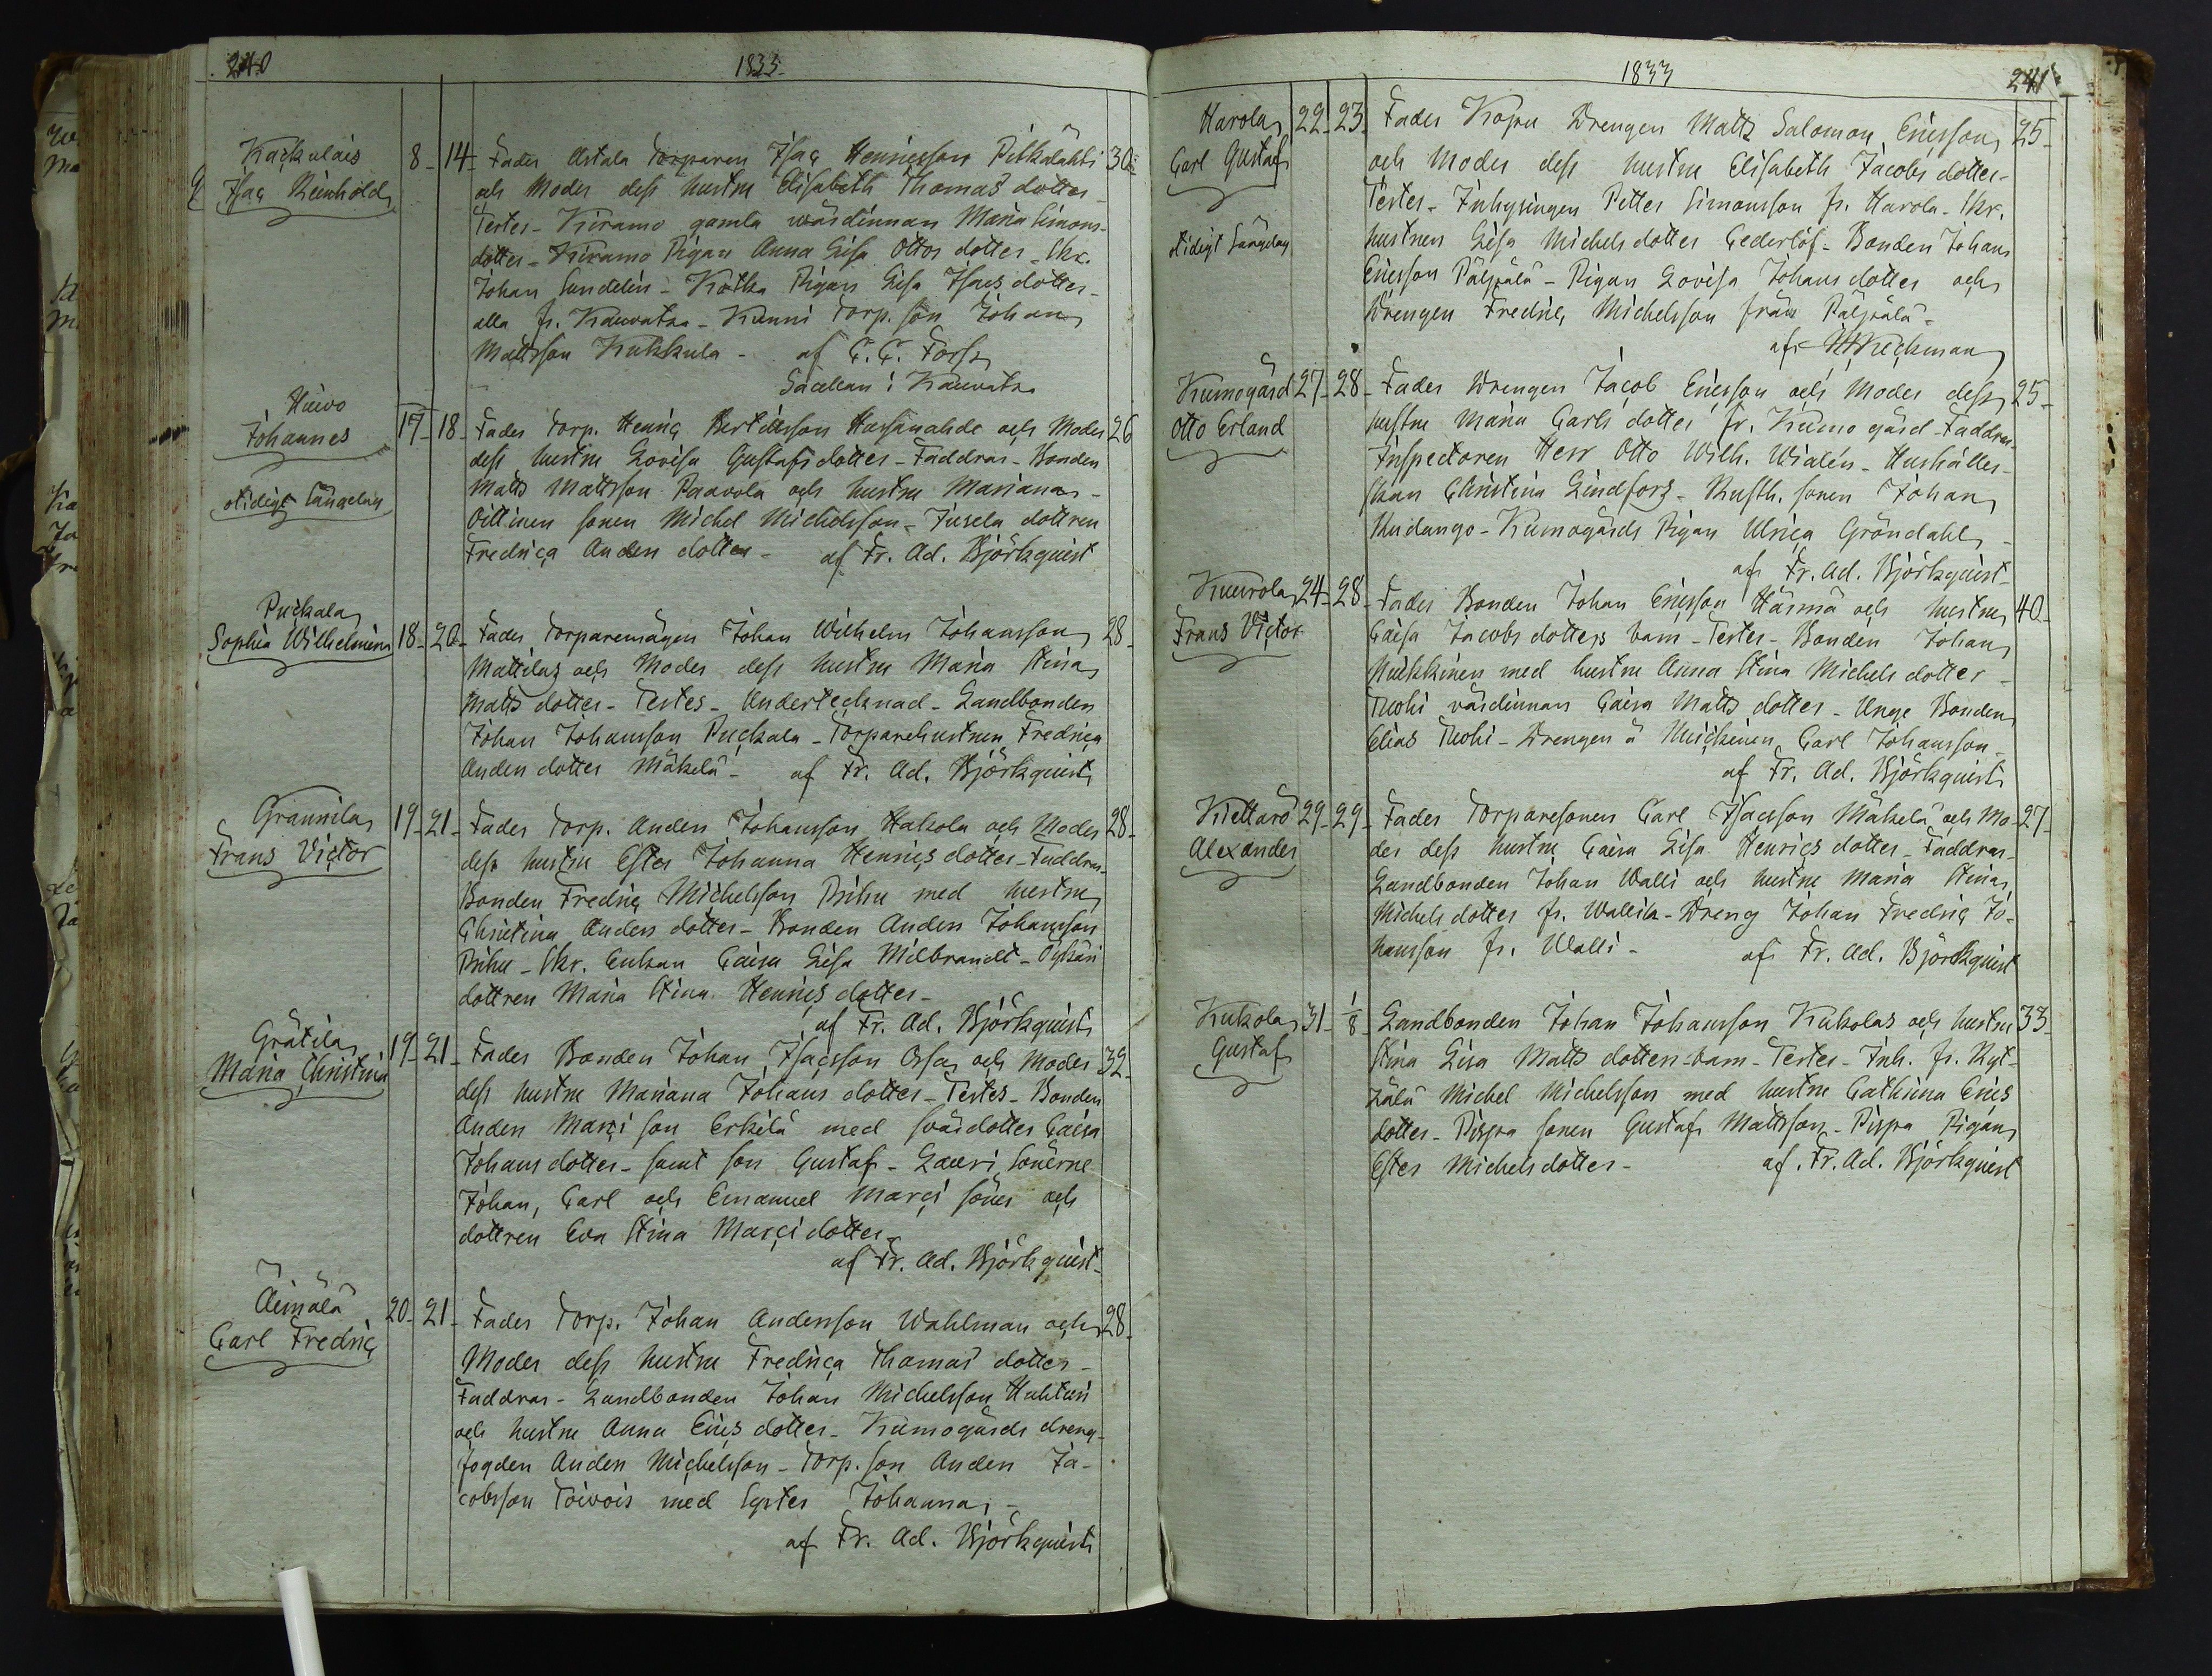 240
1833.
Kackulais
Isac Reinhold
8 14 Fader Astala Torparen Isac Henricsson Pitkälahti 30
och Moder dess hustru Elisabeth Thomas dotter
Testes - Kiramo gamla wärdinnan Maria Simons-
dotter - Kiramo Pigan Anna Lisa Ottos dotter - Skr.
Johan Sundelin - Kotka Pigan Lisa Isacs dotter -
alla fr. Kauvatsa - Kunni Torp. son Johan
Mattsson Kukkula - af C. C. Forss
Sacellan i Kauvatsa
Huivo
Johannes
otidigt Sängelag
17 18 Fader Torp. Henric Bertilsson Hassinahde och Moder 26
dess hustru Lovisa Gustafs dotter - Faddrar - Bonden
Matts Mattsson Paavola och hustru Mariana -
Oittinen sonen Michel Michelsson - Jusela dottren
Fredrica Anders dotter - af Fr. Ad. Björkquist
Puckala
Sophia Wilhelmina
18 20 Fader Torparemågen Johan Wilhelm Johansson 28
Mattilas och Moder dess hustru Maria Stina
Matts dotter - Testes - Undertecknad - Landbonden
Johan Johansson Puckala - Torparehustrun Fredrica
Anders dotter Mäkelä - af Fr. Ad. Björkquist
Grannila
Frans Victor
19 21 Fader Torp. Anders Johansson Hakola och Moder 28
dess hustru Ester Johanna Henrics dotter - Faddrar
Bonden Fredric Michelsson Prihu med hustru
Christina Anders dotter - Bonden Anders Johansson
Prihu - Skr. Enkan Caisa Lisa Milbrandt -
dottren Maria Stina Henrics dotter -
af Fr. Ad. Björkquist
Grätila
Maria Christina
19 21 Fader Bonden Johan Isacsson Ossa och Moder 32
dess hustru Mariana Johans dotter - Testes - Bonden
Anders Marci son Erkilä med svärdotter Caisa
Johans dotter - samt son Gustaf - Lauri Sönerne
Johan, Carl och Emanuel Marci söner och
dottren Eva Stina Marci dotter
af Fr. Ad. Björkquist
Äimälä
Carl Fredric
20 21 Fader Torp. Johan Andersson Wahlman och 28
Moder dess hustru Fredrica Thomas dotter -
Faddrar - Landbonden Johan Michelsson Huhturi
och hustru Anna Erics dotter - Kumogårds dreng-
fogden Anders Michelsson - Torp. son Anders Ja-
cobsson Toivois med Syster Johanna -
af Fr. Ad. Björkquist
1833
241
Harola
Carl Gustaf
otidigt Sängelag
22 23 Fader Kopru Drengen Matts Salomon Ericsson 25
och Moder dess hustru Elisabeth Jacobs dotter -
Testes - Inhysingen Petter Simonsson fr. Harola - Skr.
hustrun Lisa Michels dotter Cederlöf - Bonden Johan
Ericsson Päljälä - Pigan Lovisa Johans dotter och
Drengen Fredric Michelsson från Päljälä -
af Heckman
Kumogård
Otto Erland
27 28 Fader Drengen Jacob Ericsson och Moder dess 25
hustru Maria Carls dotter fr. Kumo gård - Faddrar
Inspectoren Herr Otto Wilh. Widlén - Hushåller-
skan Christina Lindfors - Rusth. sonen Johan
Rudango - Kumogårds Pigan Ulrica Gröndahl -
af Fr. Ad. Björkquist
Kuurola
Frans Victor
24 28 Fader Bonden Johan Ericsson Härmä och hustru 40
Caisa Jacobs dotters barn - Testes - Bonden Johan
Mukkinen med hustru Anna Stina Michels dotter -
Tuohi värdinnan Caisa Matts dotter - Unge Bonden
Elias Tuohi - Drengen å Muckinen Carl Johansson -
af Fr. Ad. Björkquist
Kiettaro
Alexander
29 29 Fader Torparesonen Carl Isacsson Mäkelä och Mo- 27
der dess hustru Caisa Lisa Henrics dotter - Faddrar
Landbonden Johan Walli och hustru Maria Stina
Michels dotter fr. Wallila - Dreng Johan Fredric Jo-
hansson fr. Walli - af Fr. Ad. Björkquist
Kukola
Gustaf
31 1/8 Landbonden Johan Johansson Kukolas och hustru 33
Stina Lisa Matts dotters barn - Testes - Inh. fr. Ryt-
zälä Michel Michelsson med hustru Cathrina Erics
dotter - Pispa sonen Gustaf Mattsson - Pispa Pigan
Ester Michels dotter - af Fr. Ad. Björkquist